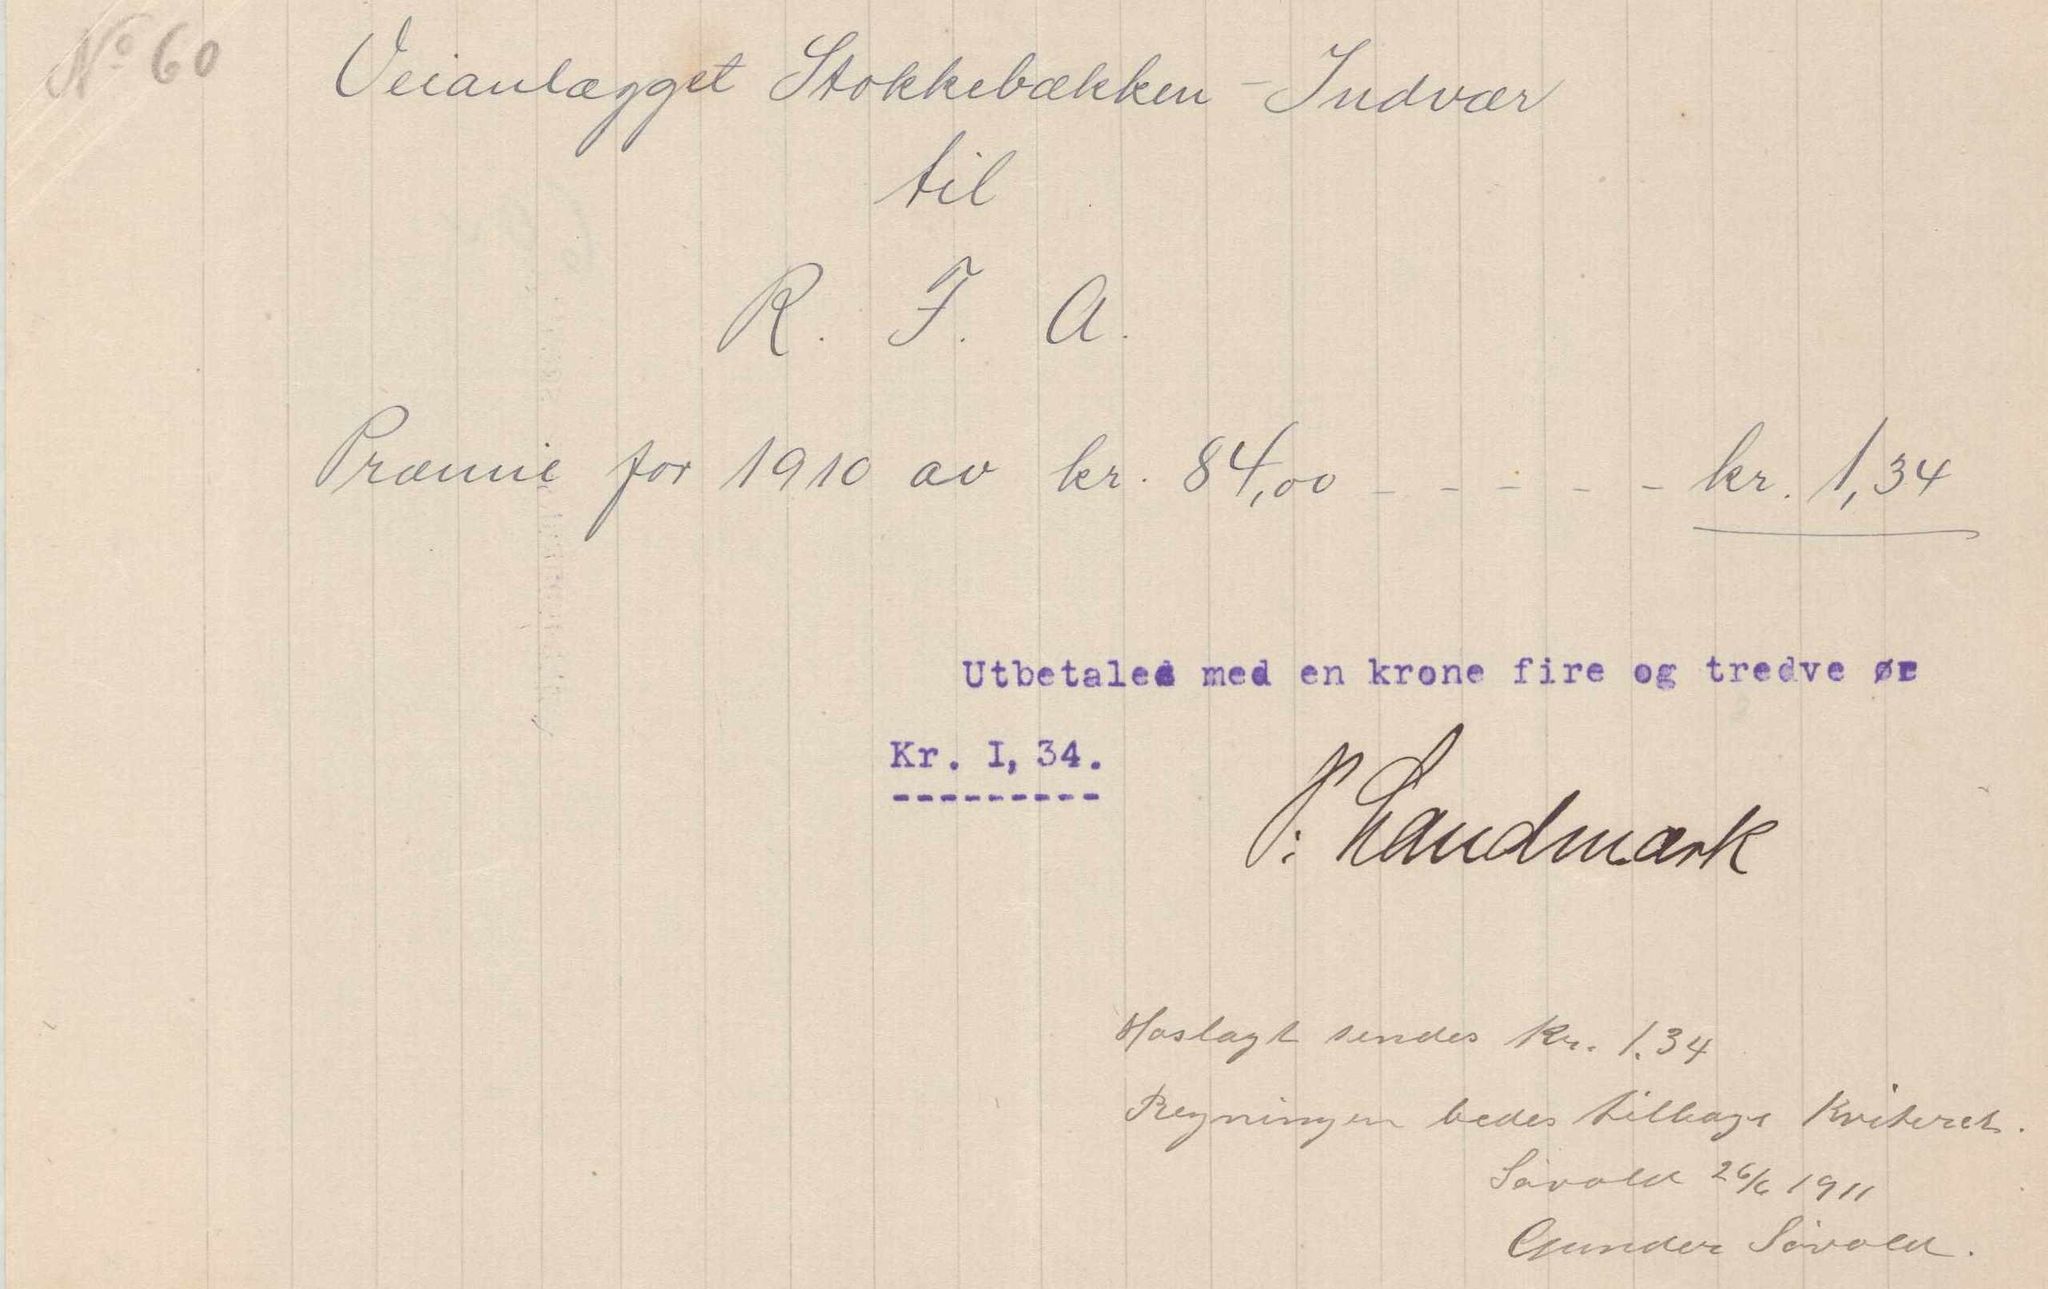 No 60
Veianlægget Stokkebækken - Indvær
til
R. F. A.
Præmie for 1910 av kr. 84,00 - - - - - kr. 1,34
Utbetales med en krone fire og tredve øre
Kr. I,34.
---------
P. Landmark
Hoslagt sendes kr. 1.34
Regningen bedes tilbage kviteret.
Søvold 26/6 1911
Gunder Søvold.